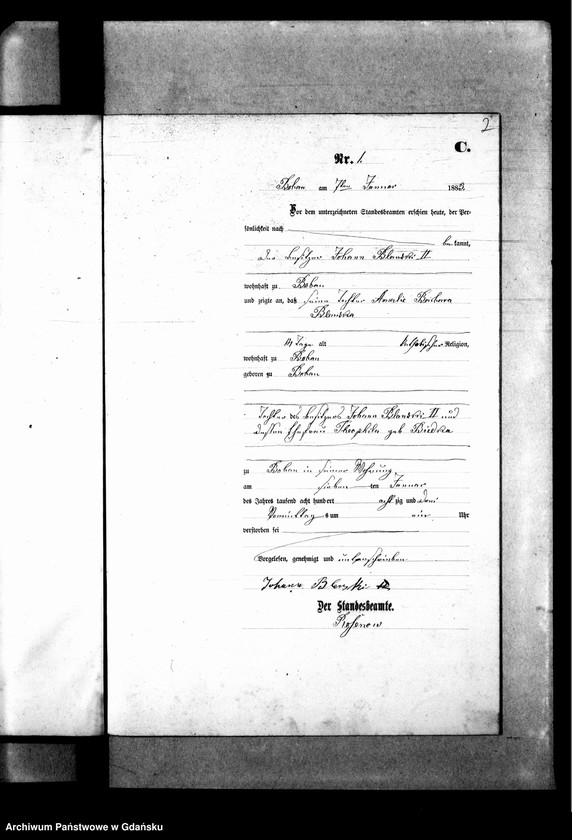 2
C.
Nr. 1.
Bohan am 7ten Januar 1883.
Vor dem unterzeichneten Standesbeamten erschien heute, der Per-
sönlichkeit nach
bekannt,
der Besitzer Johann II
wohnhaft zu Bohan
und zeigte an, daß seine Tochter Amalie Barbara
14 Tage alt katholischer Religion,
wohnhaft zu Bohan
geboren zu Bohan
Tochter des Besitzers Johann II und
dessen Ehefrau geb
zu Bohan in seiner Wohnung
am sieben ten Januar
des Jahres tausend acht hundert achtzig und drei
Vormittags um Uhr
verstorben sei
Vorgelesen, genehmigt und unterschrieben
Johann II
Der Standesbeamte.
Archiwum Państwowe w Gdańsku